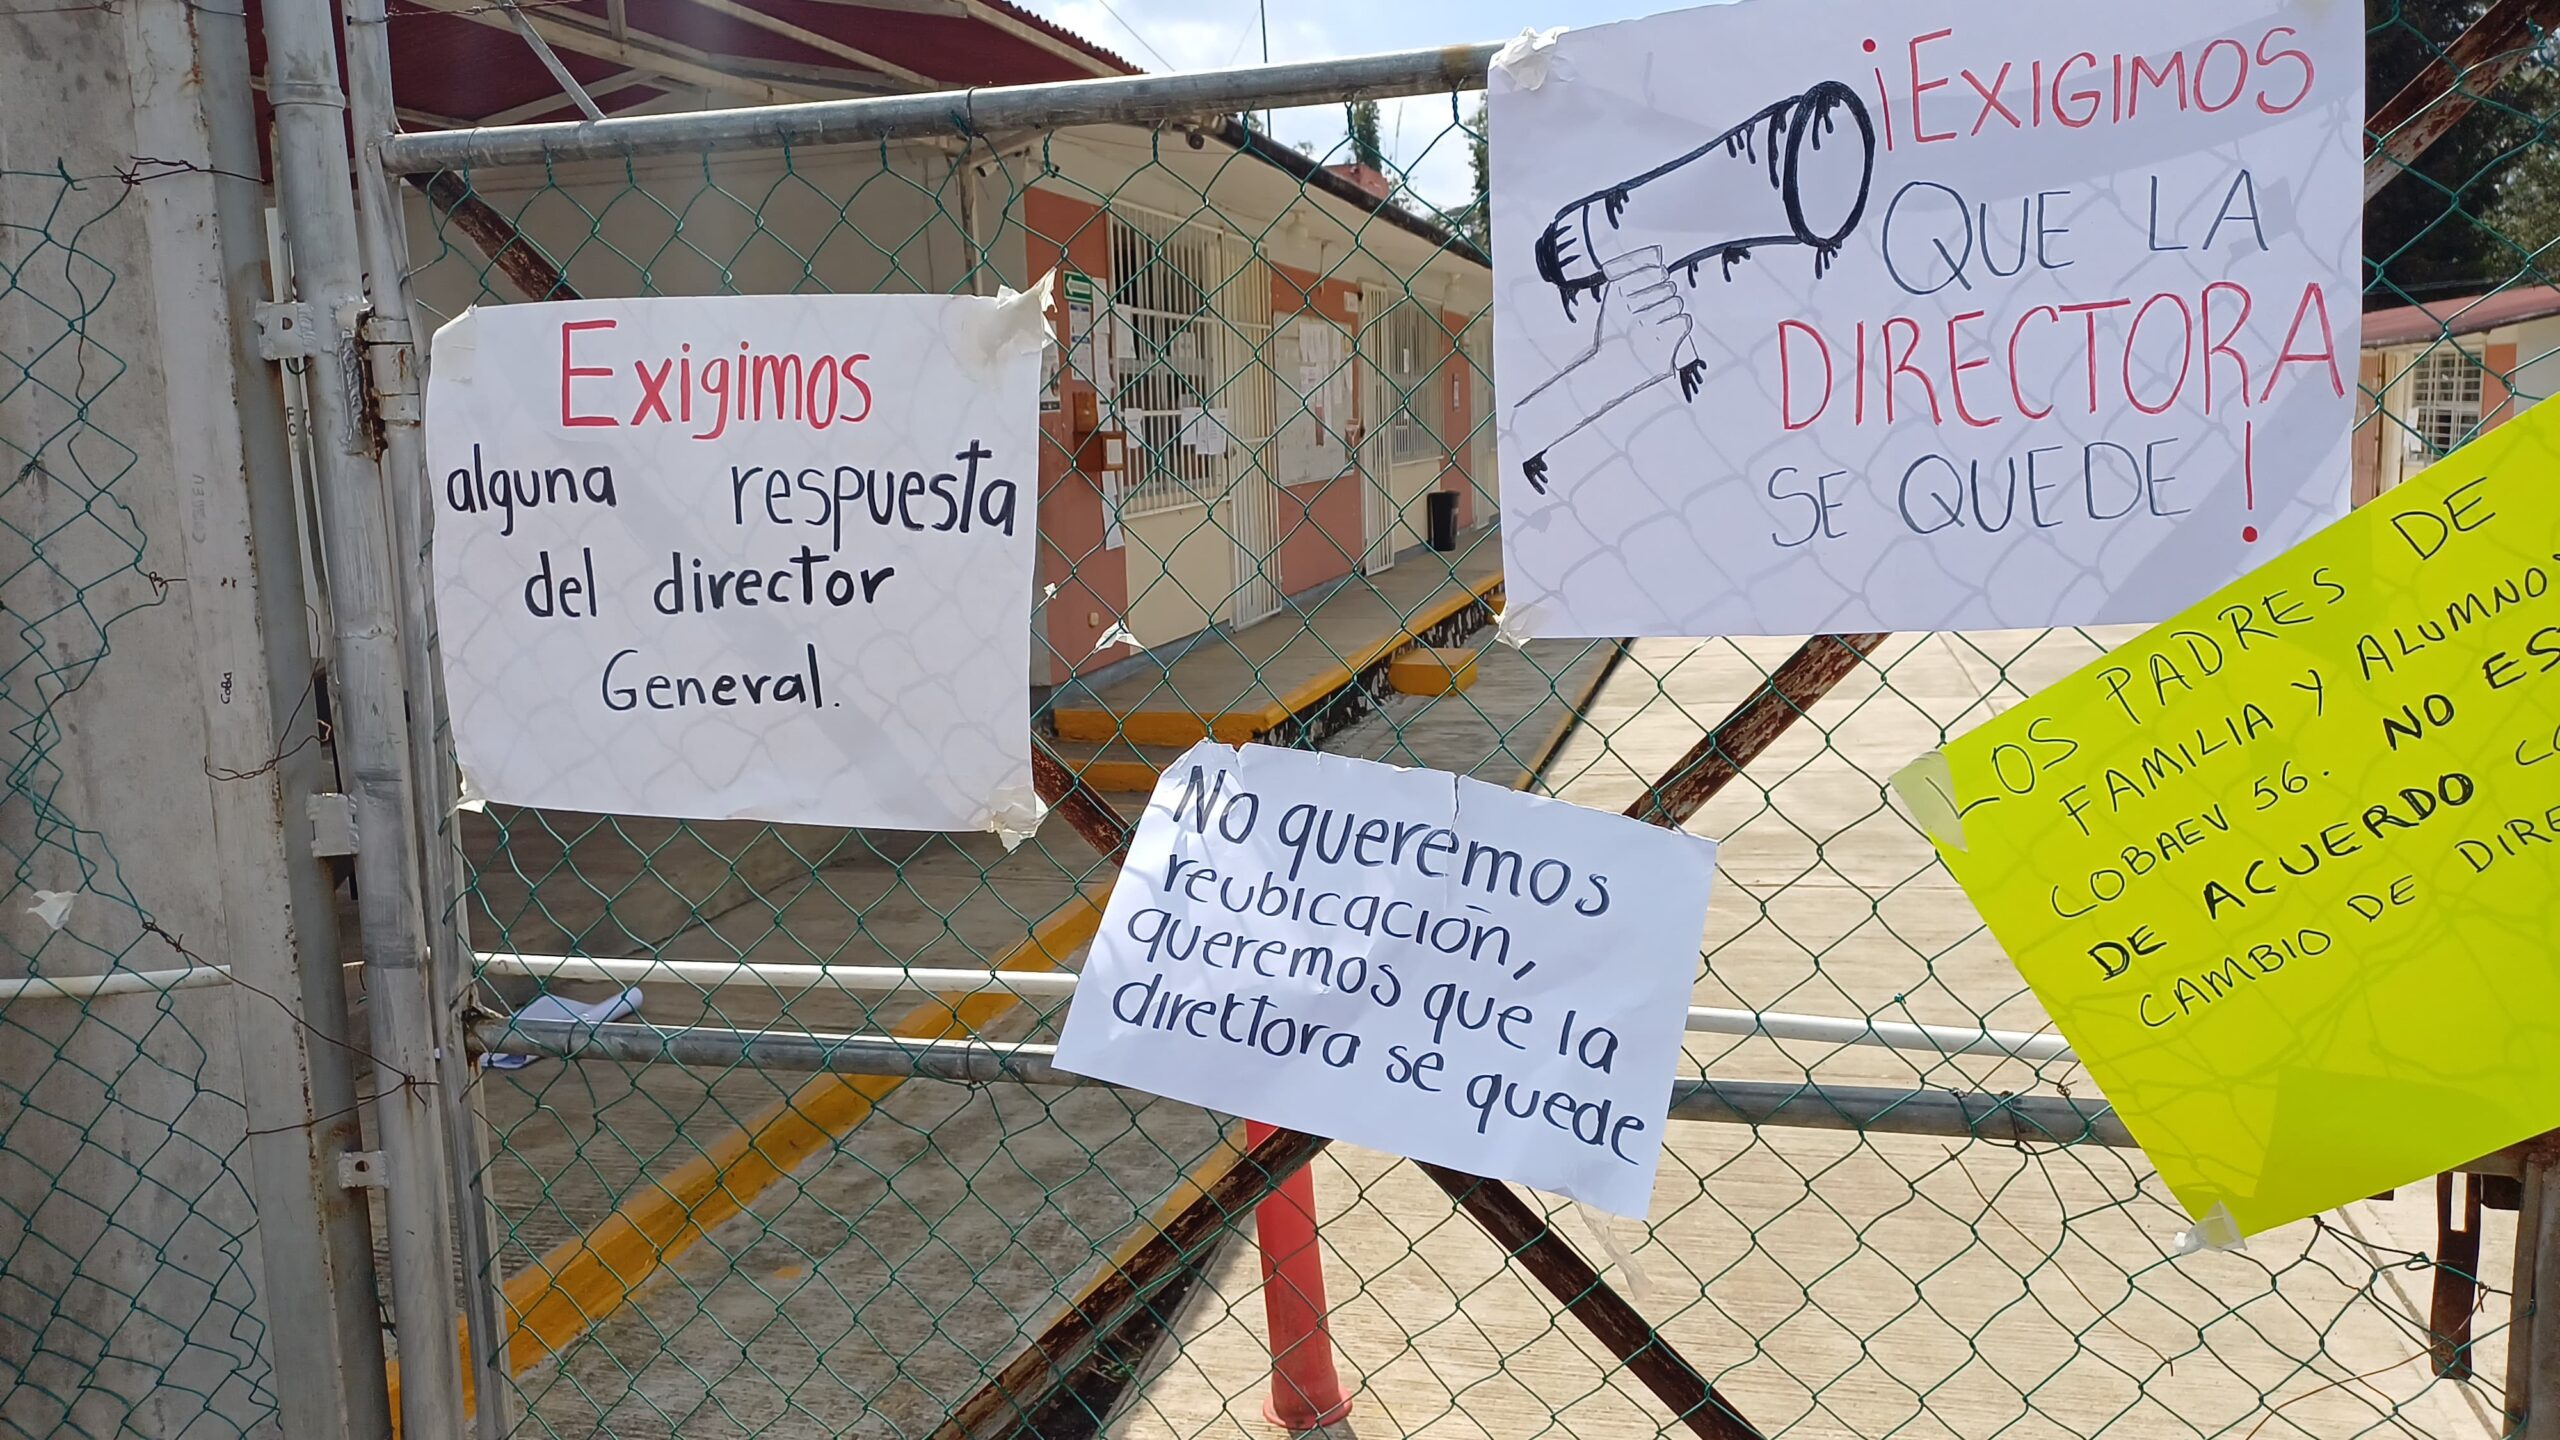 Exigimos
alguna respuesta
del director
General.
¡EXIGIMOS
QUE LA
DIRECTORA
SE QUEDE!
No queremos
reubicación,
queremos que la
direttora se quede
LOS PADRES DE
FAMILIA Y ALUMNOS
COBAEV 56. NO
DE ACUERDO
CAMBIO DE